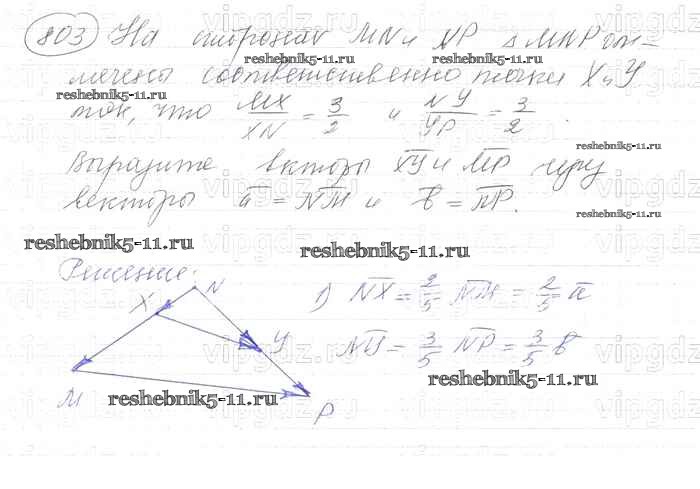 803 На сторонах MN и NP △ MNP от-
мечены соответственно точки X и Y
так, что MX/XN = 3/2 и NY/YP = 3/2.
Выразите векторы XY и MP через
векторы a = NM и b = NP.
Решение:
1) NX = 2/5 NM = 2/5 a
NY = 3/5 NP = 3/5 b
N
X
Y
M
P
reshebnik5-11.ru
reshebnik5-11.ru
reshebnik5-11.ru
reshebnik5-11.ru
reshebnik5-11.ru
reshebnik5-11.ru
reshebnik5-11.ru
reshebnik5-11.ru
reshebnik5-11.ru
vipgdz.ru